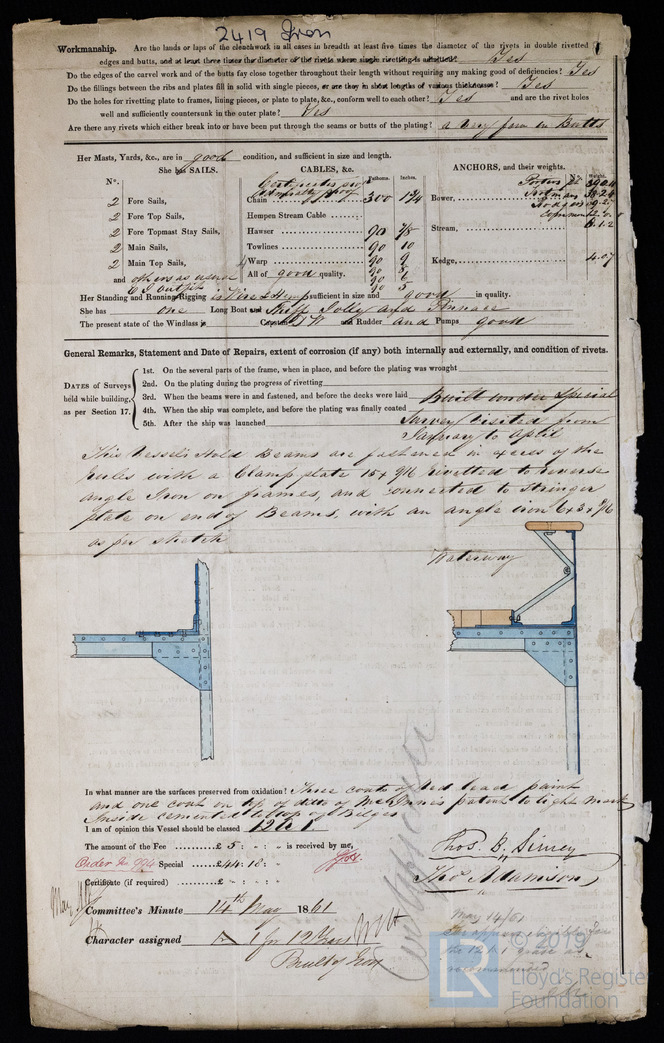 2419 Iron
Workmanship. Are the lands or laps of the clenchwork in all cases in breadth at least five times the diameter of the rivets in double rivetted
edges and butts, and at least three times the diameter of the rivets where single rivetting is admitted? Yes
Do the edges of the carvel work and of the butts fay close together throughout their length without requiring any making good of deficiencies? Yes
Do the fillings between the ribs and plates fill in solid with single pieces, or are they in short lengths of various thicknesses? Yes
Do the holes for rivetting plate to frames, lining pieces, or plate to plate, &c., conform well to each other? Yes and are the rivet holes
well and sufficiently countersunk in the outer plate? Yes
Are there any rivets which either break into or have been put through the seams or butts of the plating? a very few in Butts
Her Masts, Yards, &c., are in good condition, and sufficient in size and length.
She has SAILS. CABLES, &c. ANCHORS, and their weights.
No. Fathoms. Inches. No. Weight.
2 Fore Sails, Chain 300 Bower,
2 Fore Top Sails, Hempen Stream Cable
2 Fore Topmast Stay Sails, Hawser 90 7/8 Stream, 6.1.2
2 Main Sails, Towlines 90 10
2 Main Top Sails, Warp 90 9 Kedge,
and others as usual All of good quality.
Her Standing and Running Rigging is Wire & Hemp sufficient in size and good in quality.
She has one Long Boat and Skiff Jolly and Pinnace
The present state of the Windlass is Capstan and Rudder and Pumps good
General Remarks, Statement and Date of Repairs, extent of corrosion (if any) both internally and externally, and condition of rivets.
DATES of Surveys held while building, as per Section 17.
1st. On the several parts of the frame, when in place, and before the plating was wrought
2nd. On the plating during the progress of rivetting
3rd. When the beams were in and fastened, and before the decks were laid Built under Special
4th. When the ship was complete, and before the plating was finally coated
5th. After the ship was launched Survey Visited from
January to April
This Vessels Hold Beams are fastened in
with a Clamp plate 15 x 9/16 rivetted to reverse
angle Iron on frames, and connected to stringer
plate on end of Beams, with an angle iron 6 x 3 x 9/16
as per sketch
Waterway
In what manner are the surfaces preserved from oxidation? Three coats of Red lead paint
and one coat on top of ditto of McInnes patent to light mark
Inside cemented to top of Bilges
I am of opinion this Vessel should be classed 12 A 1.
The amount of the Fee £ 5 : - : - is received by me, Thos. B. Simey
Order No 924 Special £44: 18: - Thos Adamson
Certificate (if required) £ - : - : -
Committee's Minute 14th May 1861
May 14/61
Character assigned A 1 for 12 Years
Built of Iron
Certificate
© 2019
LR
Lloyd's Register
Foundation